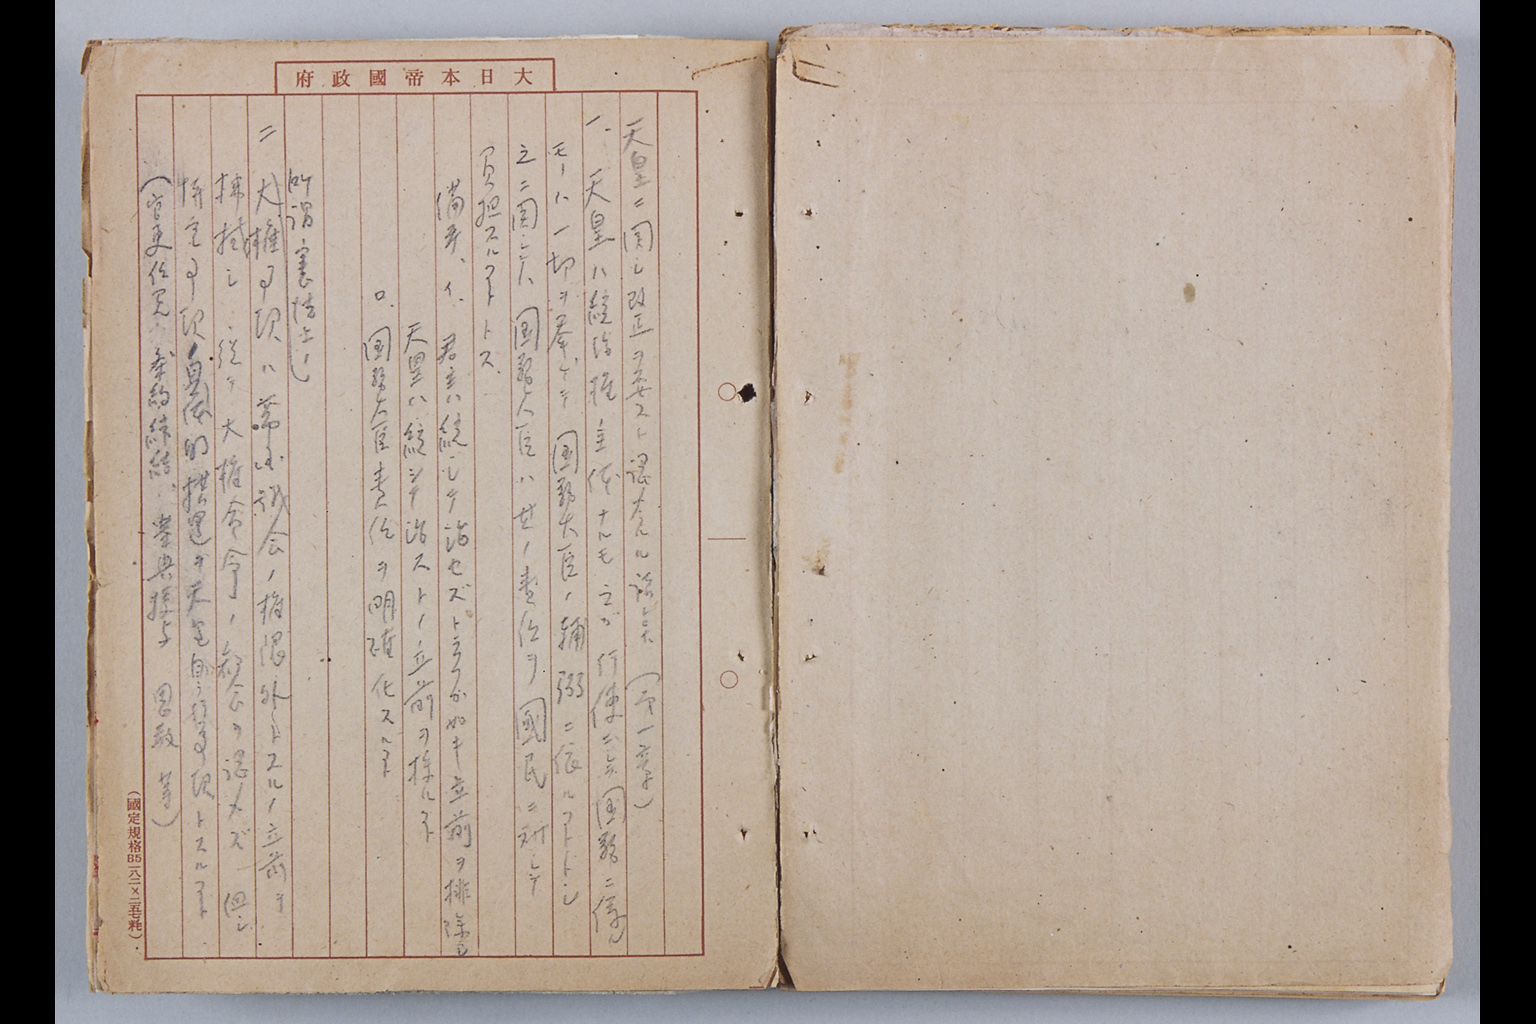 大日本帝國政府
天皇ニ関シ改正ヲ要スト認ムル諸点（第一章）
一、天皇ハ統治権ノ主体ナルモ之ガ行使ニシテ国務ニ係ル
モノハ一切ヲ挙ゲテ国務大臣ノ輔弼ニ依ルコトトシ
之ニ関シテハ国務大臣ハ其ノ責任ヲ國民ニ対シテ
負担スルコトトス
備考、イ、君主ハ統シテ治セズト云フガ如キ立前ヲ排除シ
天皇ハ統シテ治ストノ立前ヲ採ルコト
ロ、国務大臣責任ヲ明確化スルコト
所謂憲法上ノ
二 大権事項ハ帝国議会ノ権限外トスルノ立前ヲ
払拭シ、従テ大権命令ノ観念ヲ認メズ 但シ
特定事項ノ具体的措置ヲ天皇ノ事項トスルコト
（官吏任免、条約締結、栄典授与 恩赦 等）
（國定規格B5一八二×二五七粍）